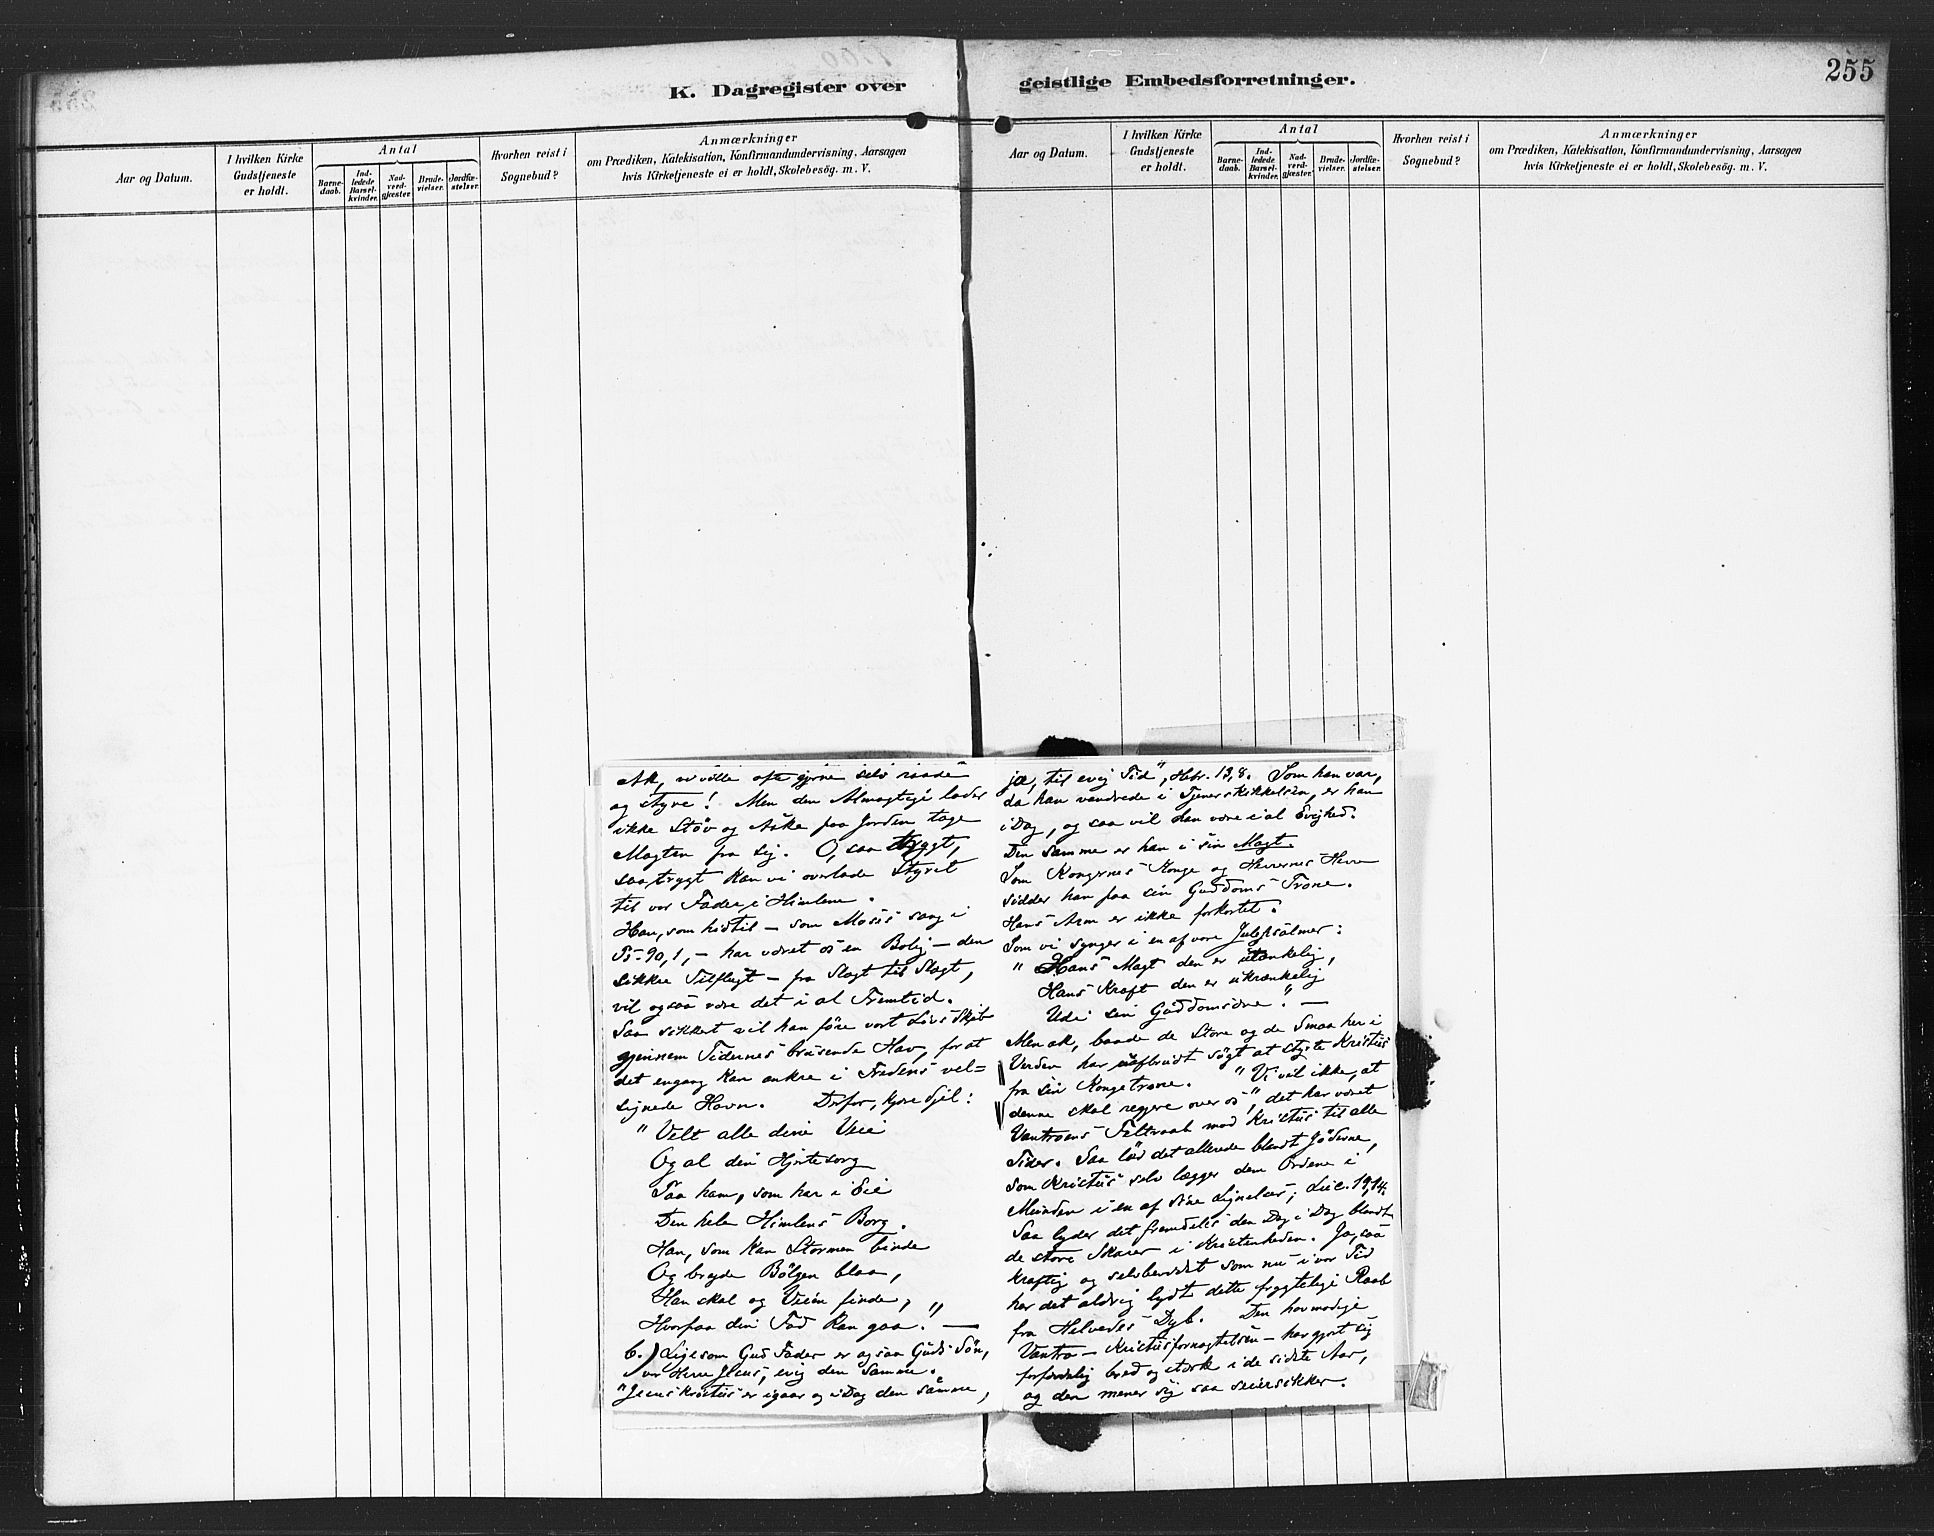 K. Dagregister over geistlige Embedsforretninger.
255
Aar og Datum.
I hvilken Kirke
Gudstjeneste
er holdt.
Antal
Barne-
daab.
Ind-
ledede
Barsel-
kvinder.
Nad-
verd-
gjæster.
Brude-
vielser.
Jordfæ-
stelser.
Hvorhen reist i
Sognebud?
Anmærkninger
om Prædiken, Katekisation, Konfirmandundervisning, Aarsagen
hvis Kirketjeneste ei er holdt, Skolebesög. m. V.
Aar og Datum.
I hvilken Kirke
Gudstjeneste
er holdt.
Antal
Barne-
daab.
Ind-
ledede
Barsel-
kvinder.
Nad-
verd-
gjæster.
Brude-
vielser.
Jordfæ-
stelser.
Hvorhen reist i
Sognebud?
Anmærkninger
om Prædiken, Katekisation, Konfirmandundervisning, Aarsagen
hvis Kirketjeneste ei er holdt, Skolebesög. m. V.
Ak, vi ville ofte gjerne selv raade
og styre! Men den Almagtige lader
ikke Støv og Aske paa Jorden tage
Magten fra sig. O, saa trygt,
saa trygt kan vi overlade Styret
til vor Fader i Himlene.
Han, som hidtil – som Moses sang i
Ps. 90,1, – har været os en Bolig – den
sikkre Tilflugt – fra Slægt til Slægt,
vil ogsaa være det i al Fremtid.
Saa sikkert vil han føre vort Livs Skib
gjennem Tidernes brusende Hav, for at
det engang kan ankre i Fredens vel=
signede Havn. Derfor, kjære Sjel:
"Velt alle dine Veie
Og al din Hjertesorg
Paa ham, som har i Eie
Den hele Himlens Borg.
Han, som kan Stormen binde
Og bryde Bølgen blaa,
Han skal og Veien finde,
Hvorpaa din Fod kan gaa." —
6.) Ligesom Gud Fader er ogsaa Guds Søn,
vor Herre Jesus, evig den Samme.
"Jesus Kristus er igaar og idag den samme,
ja, til evig Tid", Hebr. 13,8. Som han var,
da han vandrede i Tjenerskikkelsen, er han
i Dag, og saa vil han være i al Evighed.
Den samme er han i sin Magt.
Som Kongernes Konge og Herrernes Herre
sidder han paa sin Guddoms Trone.
Hans Arm er ikke forkortet.
Som vi synger i en af vore Julepsalmer:
"Hans Magt den er utænkelig,
Hans Kraft den er ukrænkelig
Udi sin Guddomsære." —
Men ak, baade de Store og de Smaa her i
Verden har uafbrudt søgt at styrte Kristus
fra sin Kongetrone. "Vi vil ikke, at
denne skal regjere over os," det har været
Vantroens Feltraab mod Kristus til alle
Tider. Saa lød det allerede blandt Jøderne,
som Kristus selv lægger dem Ordene i
Munden i en af sine Lignelser, Luc. 19,14.
Saa lyder det fremdeles den Dag i Dag blandt
de store Skarer i Kristenheden. Ja, saa
kraftig og selvbevidst som nu i vor Tid
har det aldrig lydt dette frygtelige Raab
fra Helvedes Dyb. Den hovmodige
Vantro – Kristusfornægtelsen – har gjort sig
forfærdelig bred og stærk i de sidste Aar,
og den mener sig saa seierssikker.